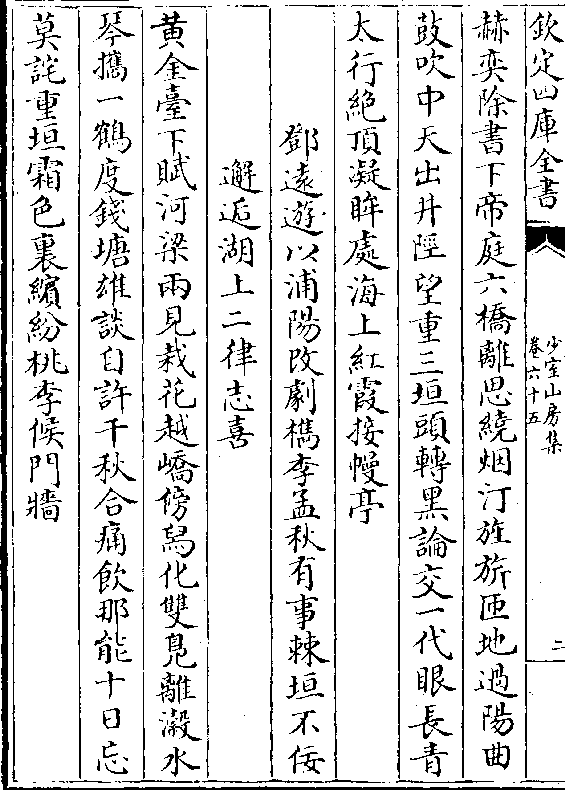 欽定四庫全書
少室山房集
卷六十五
二
赫奕除書下帝庭六橋離思繞烟汀旌旂匝地過陽曲
鼓吹中天出井陘望重三垣頭轉黑論交一代眼長青
太行絶頂凝眸處海上紅霞接幔亭
鄧遠遊以浦陽改劇檇李孟秋有事棘垣不佞
邂逅湖上二律志喜
黄金臺下賦河梁兩見栽花越嶠傍舄化雙鳧離瀫水
琴攜一鶴度錢塘雄談自許千秋合痛飲那能十日忘
莫詫重垣霜色裏繽紛桃李候門牆